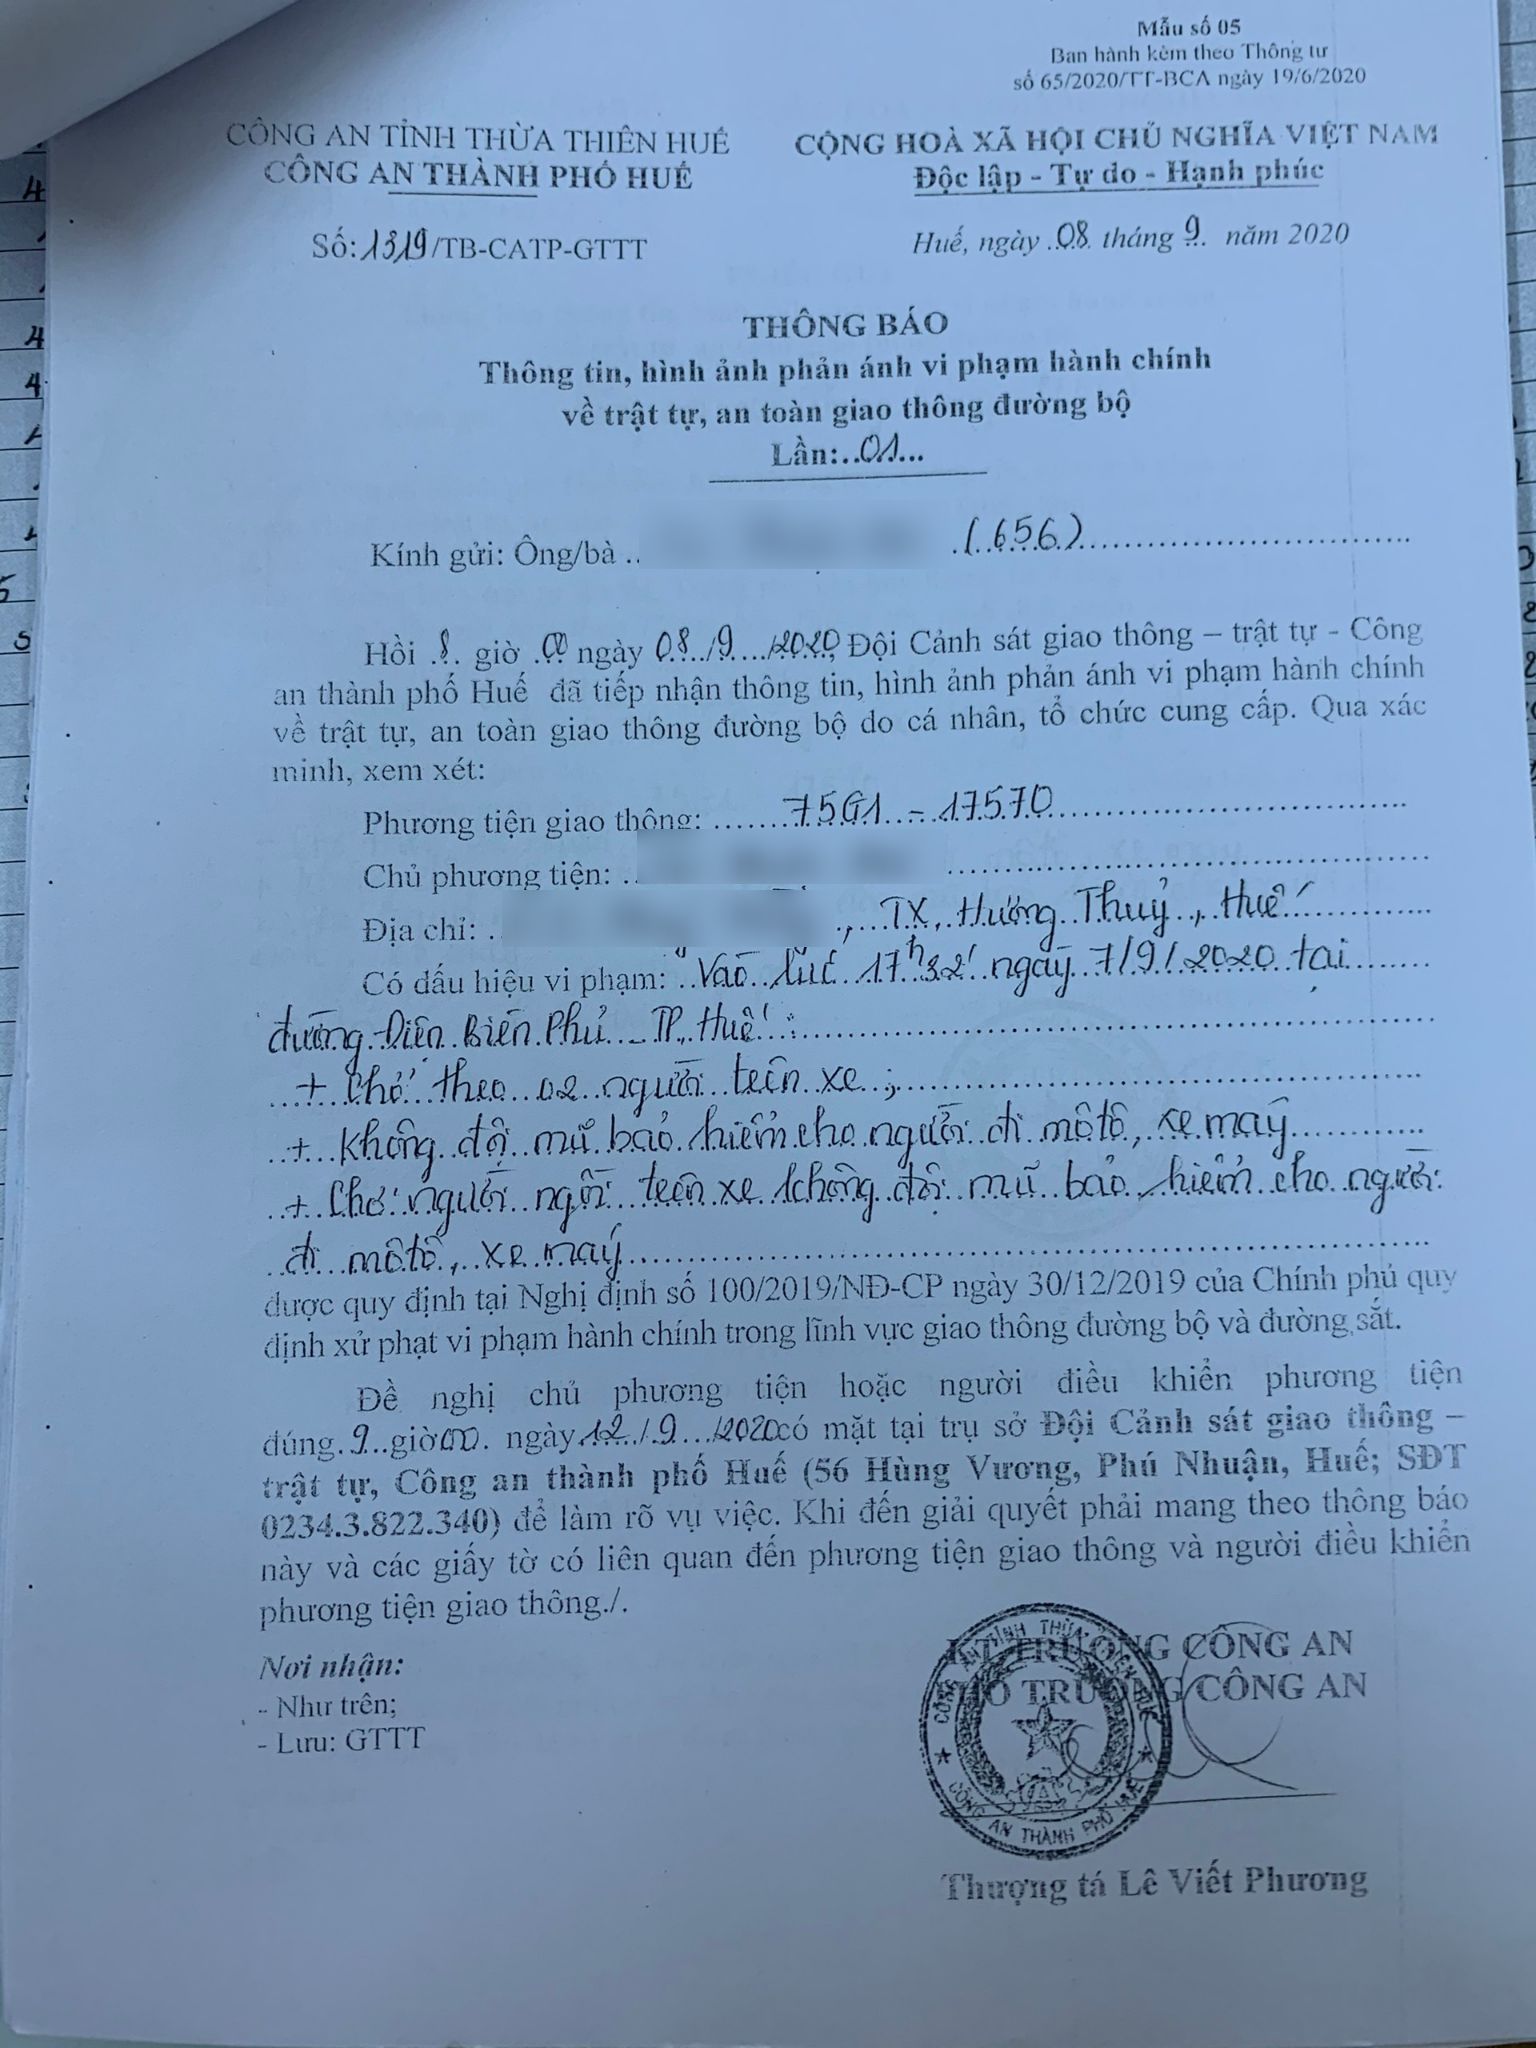 Mẫu số 05
Ban hành kèm theo Thông tư
số 65/2020/TT-BCA ngày 19/6/2020
CÔNG AN TỈNH THỪA THIÊN HUẾ
CÔNG AN THÀNH PHỐ HUẾ
CỘNG HOÀ XÃ HỘI CHỦ NGHĨA VIỆT NAM
Độc lập - Tự do - Hạnh phúc
Số: 1319/TB-CATP-GTTT
Huế, ngày 08 tháng 9 năm 2020
THÔNG BÁO
Thông tin, hình ảnh phản ánh vi phạm hành chính
về trật tự, an toàn giao thông đường bộ
Lần: 01
Kính gửi: Ông/bà (656)
Hồi 8 giờ 00 ngày 08/9/2020, Đội Cảnh sát giao thông – trật tự - Công
an thành phố Huế đã tiếp nhận thông tin, hình ảnh phản ánh vi phạm hành chính
về trật tự, an toàn giao thông đường bộ do cá nhân, tổ chức cung cấp. Qua xác
minh, xem xét:
Phương tiện giao thông: 75G1 - 17570
Chủ phương tiện:
Địa chỉ: , TX, Hương Thuỷ, Huế
Có dấu hiệu vi phạm: "Vào lúc 17h32' ngày 7/9/2020 tại
đường Điện Biên Phủ - TP. Huế:
+ Chở theo 02 người trên xe;
+ Không đội mũ bảo hiểm cho người đi mô tô, xe máy
+ Chở người ngồi trên xe không đội mũ bảo hiểm cho người
đi mô tô, xe máy
được quy định tại Nghị định số 100/2019/NĐ-CP ngày 30/12/2019 của Chính phủ quy
định xử phạt vi phạm hành chính trong lĩnh vực giao thông đường bộ và đường sắt.
Đề nghị chủ phương tiện hoặc người điều khiển phương tiện
đúng 9 giờ 00 ngày 12/9/2020 có mặt tại trụ sở Đội Cảnh sát giao thông –
trật tự, Công an thành phố Huế (56 Hùng Vương, Phú Nhuận, Huế; SĐT
0234.3.822.340) để làm rõ vụ việc. Khi đến giải quyết phải mang theo thông báo
này và các giấy tờ có liên quan đến phương tiện giao thông và người điều khiển
phương tiện giao thông./.
Nơi nhận:
- Như trên;
- Lưu: GTTT
KT TRƯỞNG CÔNG AN
PHÓ TRƯỞNG CÔNG AN
CÔNG AN TỈNH THỪA THIÊN HUẾ
CÔNG AN THÀNH PHỐ HUẾ
Thượng tá Lê Viết Phương